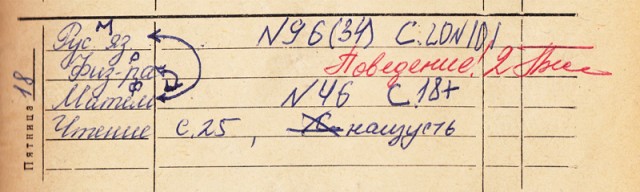 Рус яз М №96(34) С.20№101
Физ-ра Р Поведение! 2
Матем Ф №46 С.18+
Чтение с.25, наизусть
Пятница 18